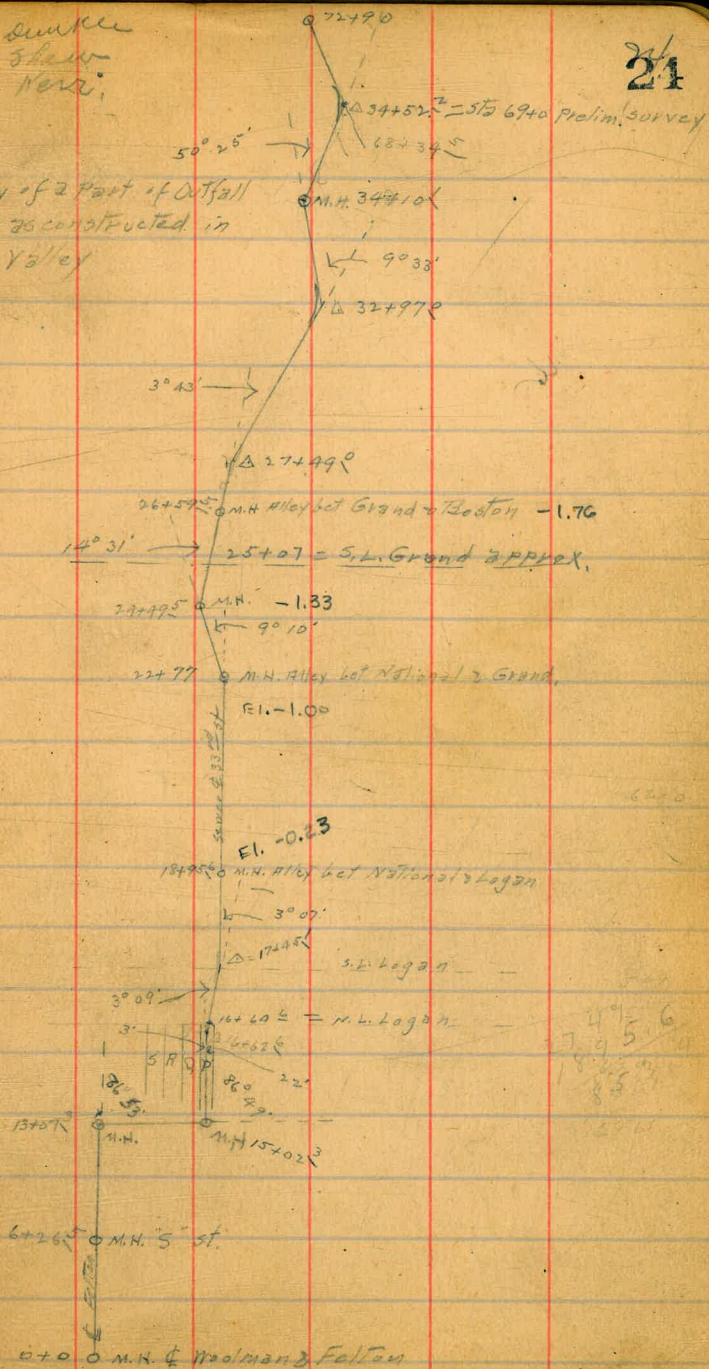 24
Shaw
72+90
△ 34+52² = Sta 69+0 Prelim. survey
68+34⁵
50° 25'
of a Part of Outfall
M.H. 34+10
as constructed in
Valley
9° 33'
△ 32+97⁰
3° 43'
△ 27+49⁰
26+59⁵ M.H Alley bet Grand & Boston -1.76
14° 31' 25+07 = S.L. Grand approx.
24+49⁵ M.H. -1.33
9° 10'
22+77 M.H. Alley bet National & Grand.
El. -1.00
33rd st
62+0
El. -0.23
18+95⁶ M.H. Alley bet National & Logan
3° 07'
△ = 17+45'
S.L. Logan
3° 09'
16+60⁶ = N.L. Logan
3'
16+62⁶
22'
86° 53'
86° 49'
13+07³ M.H.
M.H 15+02³
6+26⁵ M.H. "S" St.
¢ Felton
0+0 M.H. ¢ Woolman & Felton